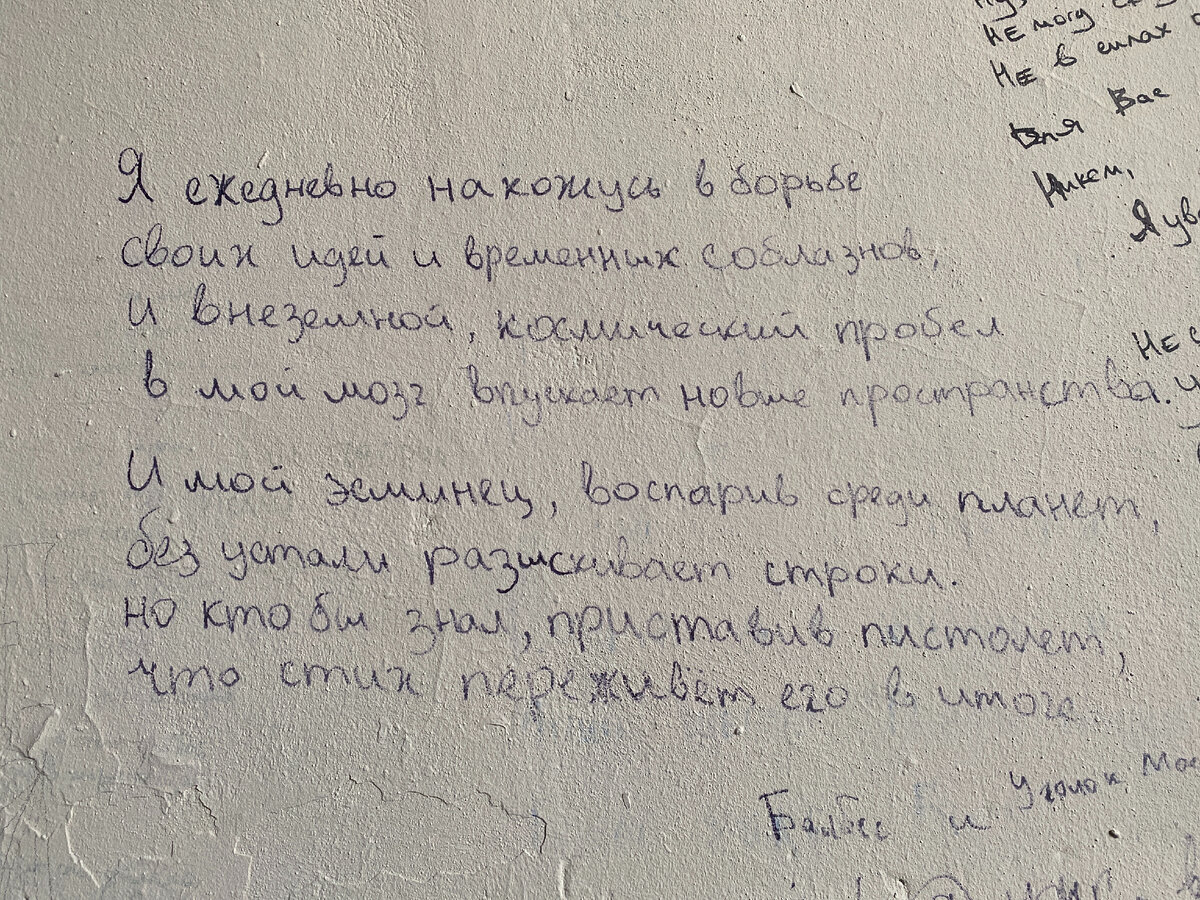 Я ежедневно нахожусь в борьбе
своих идей и временных соблазнов,
и внеземной, космический пробел
в мой мозг впускает новые пространства.
И мой эсминец, воспарив среди планет,
без устали разыскивает строки.
но кто бы знал, приставив пистолет,
что стих переживёт его в итоге.
НЕ могу
НЕ в силах
для Вас
Никем,
Я ув
НЕ
Балбес и Уголок